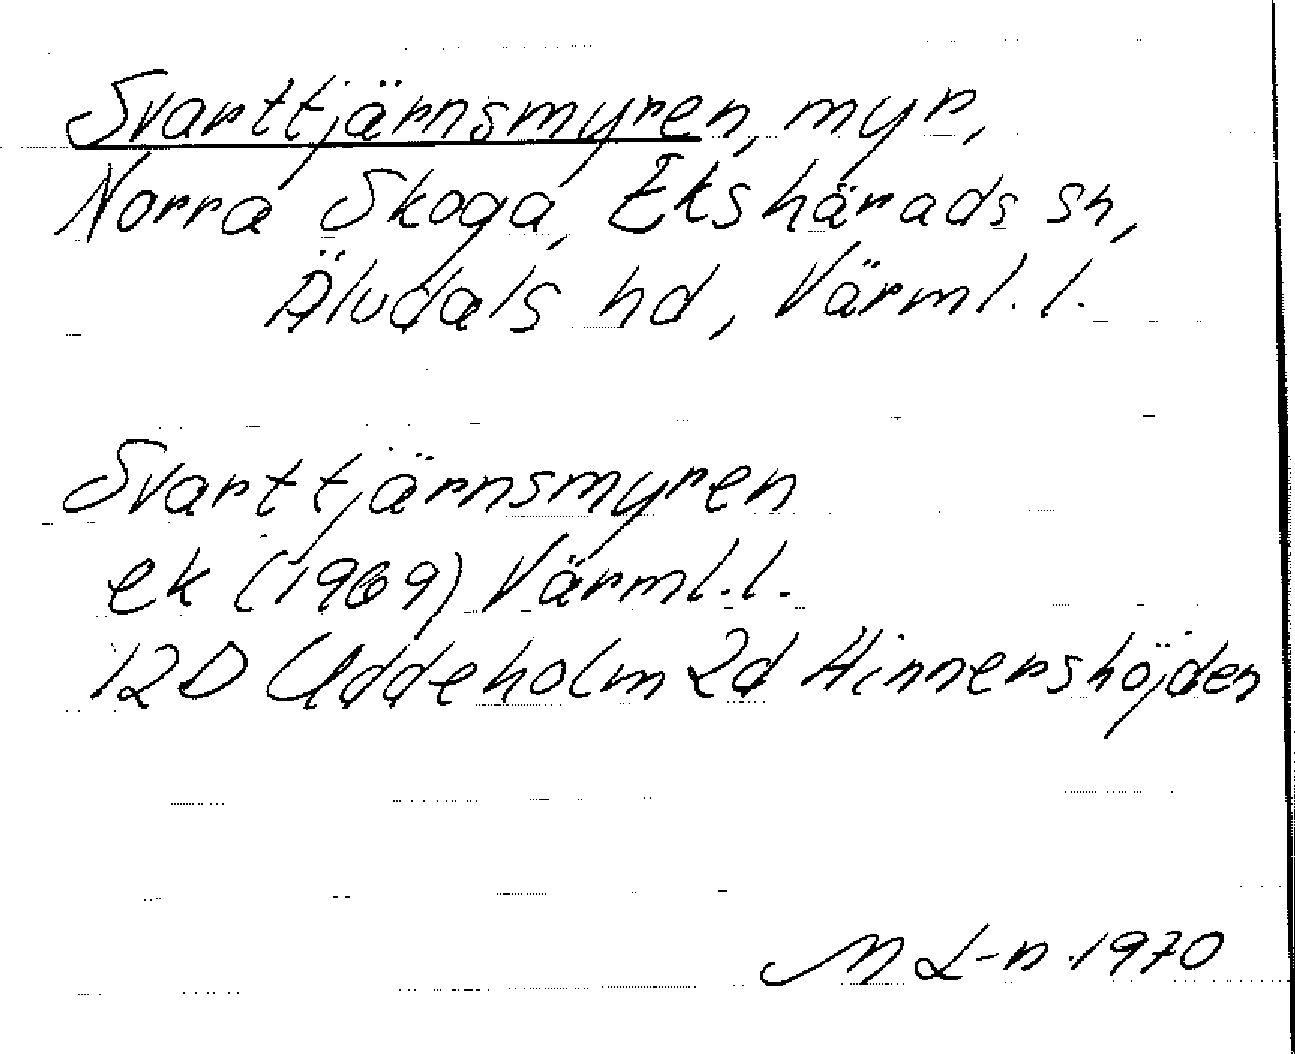 Svarttjärnsmyren, myr,
Norra Skoga, Ekshärads sn,
Älvdals hd, Värml. l.
Svarttjärnsmyren
ek (1969) Värml. l.
12D Uddeholm 2d Hinnershöjden
M L-n 1970